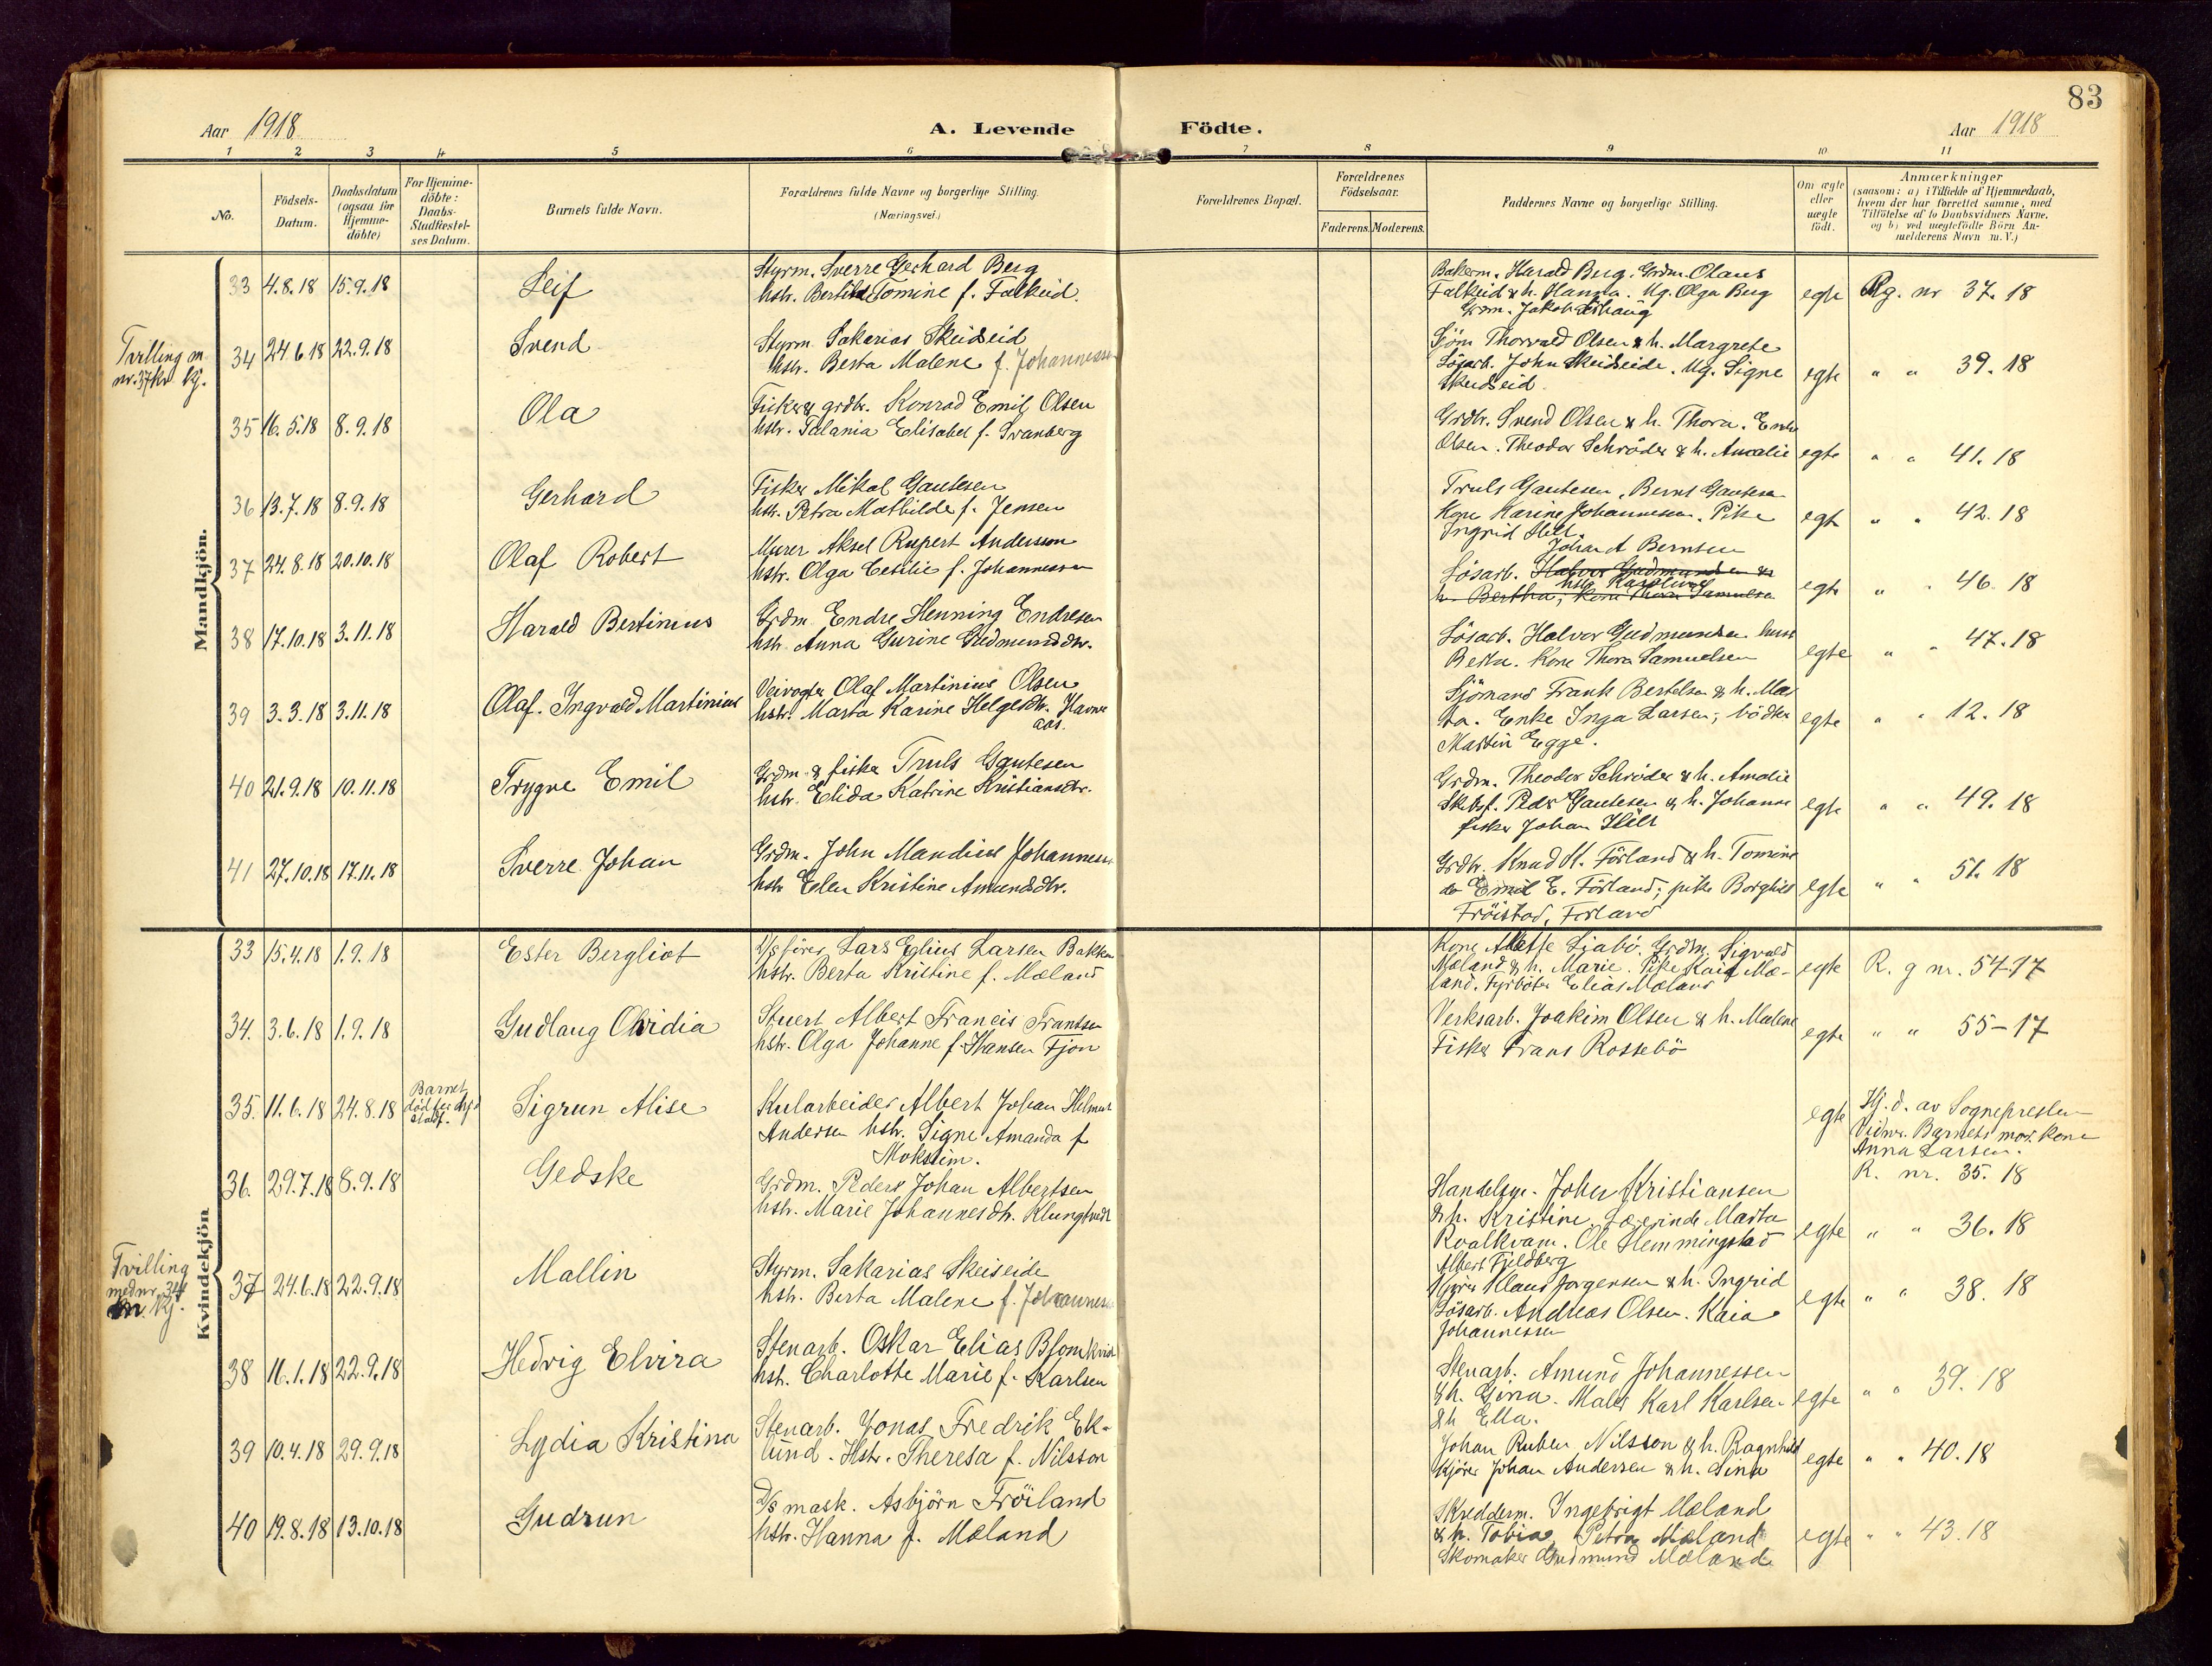 83
Aar 1918
A. Levende Födte.
Aar 1918
1 2 3 4 5 6 7 8 9 10 11
No.
Födsels-Datum.
Daabsdatum (ogsaa for Hjemme-döbte)
For Hjemme-döbte: Daabs-Stadfæstel-ses Datum.
Barnets fulde Navn.
Forældrenes fulde Navne og borgerlige Stilling.
(Næringsvei.)
Forældrenes Bopæl.
Forældrenes Födselsaar.
Faderens. Moderens.
Faddernes Navne og borgerlige Stilling.
Om ægte eller uægte födt.
Anmærkninger
(saasom: a) i Tilfælde af Hjemmedaab,
hvem der har forrettet samme, med
Tilföielse af to Daabsvidners Navne.
og b) ved uægtefödte Börn An-
melderens Navn m. V.)
Mandkjön.
33 4.8.18 15.9.18 Leif
Styrm. Sverre Gerhard Berg
hstr. Tomine f. Falkeid.
Bakerm. Harald Berg. Grdm. Olaus
Falkeid & h. Hanna. Ug. Olga Berg
Grdm. Jakob
egte Rg. nr 37.18
Tvilling m.
nr. 37 kv. kj.
34 24.6.18 22.9.18 Svend
Styrm. Sakarias Skeidseid
hstr. Berta Malene f. Johannessen
Sjöm Thorvald Olsen & h. Margrete
Lösarb. John Skeidseide. Ug. Signe
Skeidseid.
egte " " 39.18
35 16.5.18 8.9.18 Ola
Fisker & grdbr. Konrad Emil Olsen
hstr. Talania Elisabet f. Svanberg
Grdbr. Svend Olsen & h. Thora. Enke
Olsen. Theodor Schröder & h. Amalie
egte " " 41.18
36 13.7.18 8.9.18 Gerhard
Fisker Mikal Gautesen
hstr. Petra Mathilde f. Jensen
Truls Gautesen, Bernt Gautesen
Kone Karine Johannesen. Pike
Ingrid
egt " " 42.18
37 24.8.18 20.10.18 Olaf Robert
Murer Aksel Rupert Anderson
hstr. Olga Cecilie f. Johannessen
Johan A Berntsen
Lösarb. Halvor Gudmundsen &
hstr. Karoline
h. Bertha; Kone Thora Samuelsen
egte " " 46.18
38 17.10.18 3.11.18 Harald Bertinius
Grdm. Endre Henning Endresen
hstr. Anna Gurine Gudmundsdtr.
Lösarb. Halvor Gudmundsen hustr
Berta. Kone Thora Samuelsen
egte " " 47.18
39 3.3.18 3.11.18 Olaf. Ingvald Martinius
Veivogter Olaf Martinius Olsen
hstr. Marta Karine Helgesdtr. Havne
aas.
Sjömand Frank Bertelsen & h. Mar
ta. Enke Inga Larsen; bödker
Martin Egge.
egte " " 12.18
40 21.9.18 10.11.18 Trygve Emil
Grdm. & fisker Truls Gautesen
hstr. Elida Katrine Kristiansdtr.
Grdm. Theodor Schröder & h. Amalie
Skibsf. Peder Gautesen & h. Johanne
fisker Johan
egte " " 49.18
41 27.10.18 17.11.18 Sverre Johan
Grdm. John Mandius Johannesen
hstr Elen Kristine Amundsdtr.
Grdbr. Knud H. Förland & h. Tomine
Emil E. Förland; pike Borghild
Fröistad, Förland
egte " " 51.18
Kvindekjön
33 15.4.18 1.9.18 Ester Bergliot
D/s förer Lars Elius Larsen Bakken
hstr. Berta Kristine f. Mæland
Kone Liabö. Grdm. Sigvald
Mæland & h. Marie. Pike Kaia Mæ-
land. Fyrböter Elias Mæland
egte R. g nr. 54-17
34. 3.6.18 1.9.18 Gudlaug Olvidia
Stuert Albert Francis Frantsen
hstr. Olga Johanne f. Hansen Fjon
Verksarb. Joakim Olsen & h. Malene
Fisker Frans Rossebö
egte " " 55-17
35. 11.6.18 24.8.18
Barnet
död för dåps
stadf.
Sigrun Alise
Kularbeider Albert Johan Helmer
Andersen hstr. Signe Amanda f
Moksheim.
egte Hj. d. av Sognepresten
Vidner. Barnets mor. kone
Anna Larsen.
R. nr. 35.18
36. 29.7.18 8.9.18 Gedske
Grdm. Peder Johan Albertsen
hstr. Marie Johannesdtr. Klungtvedt
Handelsm. John Kristiansen
& h. Kristine. Lærerinde Marta
Roalkvam. Ole Hemmingstad
Albert Fjeldberg
egte " " 36.18
Tvilling
med nr. 34
m. kj.
37 24.6.18 22.9.18 Mallin
Styrm. Sakarias Skeiseide
hstr. Berta Malene f. Johannesen
Kjörer Klaus Jorgensen & h. Ingrid
Lösarb. Andreas Olsen. Kaia
Johannessen
egte " " 38.18
38 16.1.18 22.9.18 Hedvig Elvira
Stenarb. Oskar Elias Blomkvist
hstr. Charlotte Marie f. Karlsen
Stenarb. Amund Johannessen
& h. Gina. Maler Karl Karlsen
& h Ella.
egte " " 39.18
39 10.4.18 29.9.18 Lydia Kristina
Stenarb. Jonas Fredrik Ek-
lund. Hstr. Theresa f. Nilsson
Johan Ruben Nilsson & h. Ragnhild
Kjörer Johan Andersen & h. Sina
egte " " 40.18
40 19.8.18 13.10.18 Gudrun
D/s mask. Asbjörn Fröiland
hstr. Hanna f. Mæland
Skredderm. Ingebrigt Mæland
& h. Tobia, Petra Mæland
Skomaker Gudmund Mæland
egte " " 43.18